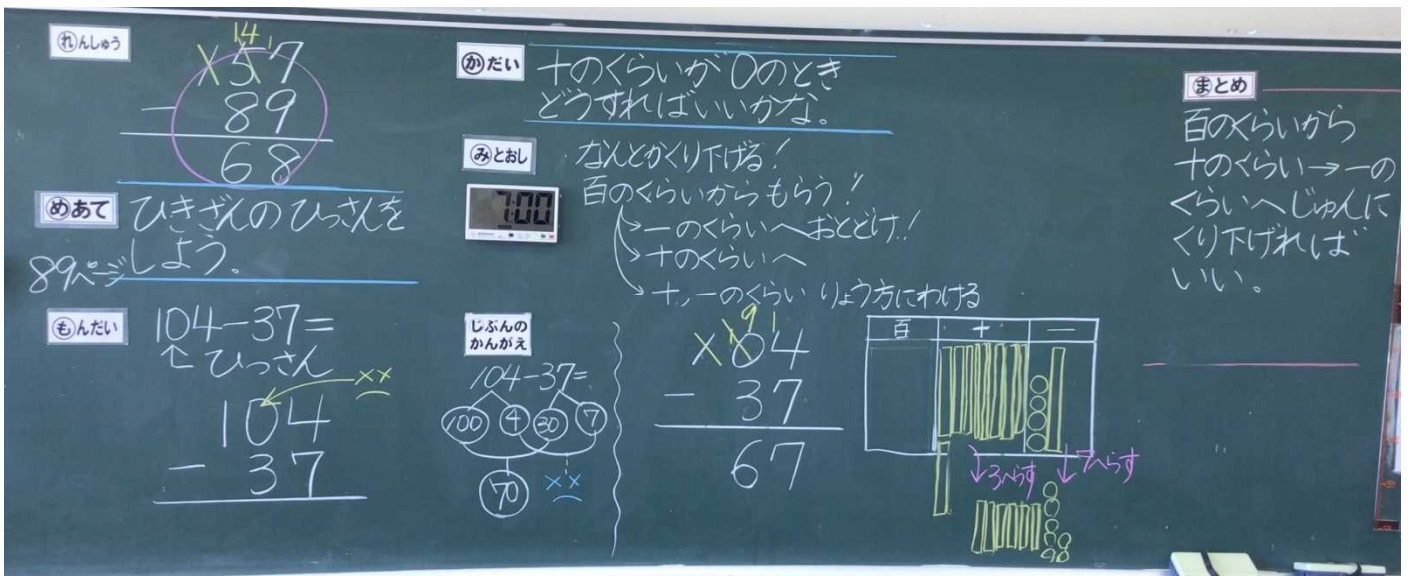 れんしゅう
14 1
157
- 89
68
めあて
ひきざんのひっさんを
しよう。
89ページ
もんだい
104-37=
↑ ひっさん
××
104
- 37
かだい
十のくらいが0のとき
どうすればいいかな。
みとおし
なんとかくり下げる!
百のくらいからもらう!
7:00
→一のくらいへおとどけ!!
→十のくらいへ
→十、一のくらい りょう方にわける
じぶんの
かんがえ
104-37=
100 4 30 7
70 ××
1 9 1
104
- 37
67
百 十 一
↓3へらす ↓7へらす
まとめ
百のくらいから
十のくらい→一の
くらいへじゅんに
くり下げれば
いい。